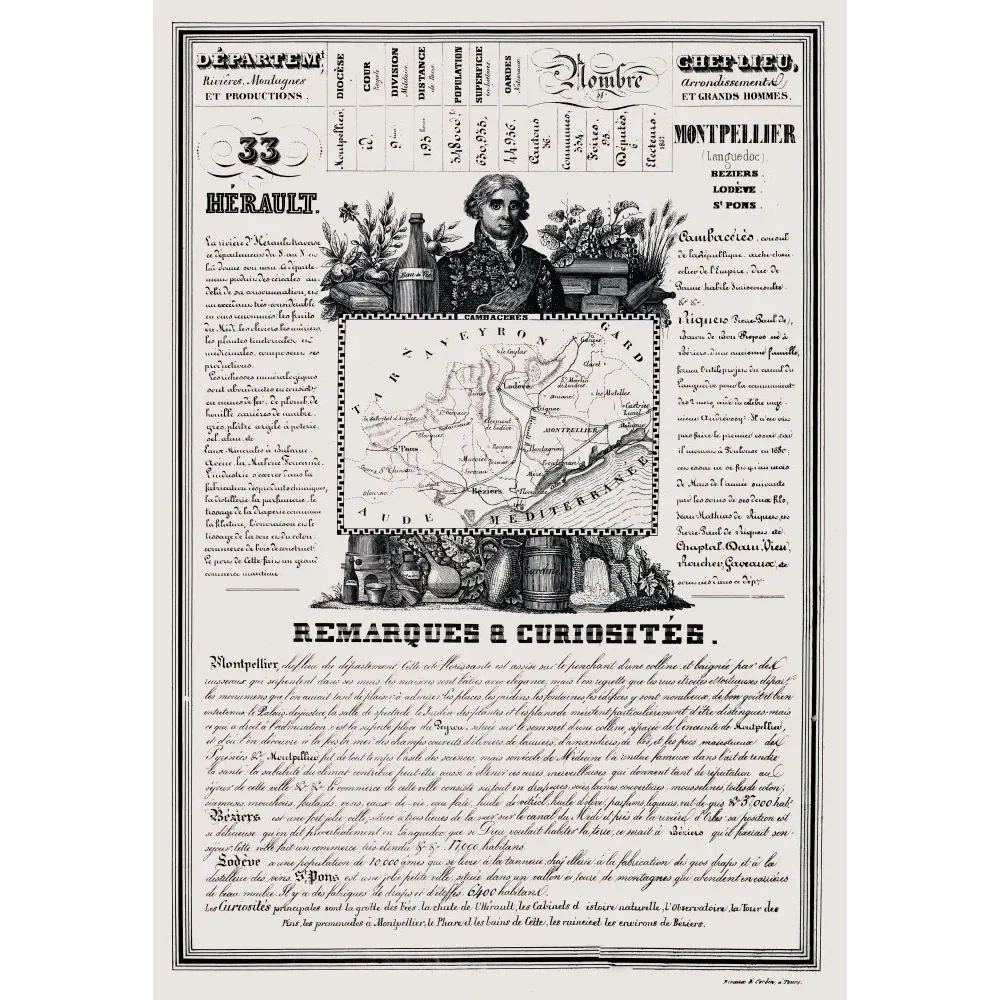 DÉPARTEMt,
Rivières, Montagnes
ET PRODUCTIONS.
DIOCÈSE
Montpellier
COUR
Royale
id.
DIVISION
Militaire
9me
DISTANCE
de Paris
193 lieues
POPULATION
348000
SUPERFICIE
en hectares
630,935
GARDES
Nationaux
44936
Nombre
de
Cantons
36
Communes,
334
Foires,
95
Députés,
6
Electeurs
1807
CHEF-LIEU,
Arrondissements
ET GRANDS HOMMES.
33
HÉRAULT.
MONTPELLIER
(Languedoc).
BEZIERS.
LODÈVE.
St PONS.
La rivière d'Hérault traverse
ce département du S. au N. et
lui donne son nom. Ce départe-
ment produit des céréales au
delà de sa consommation, et
un excédant très-considérable
en vins renommés; les fruits
du Midi, les oliviers, les mûriers,
les plantes tinctoriales et
médicinales, composent ses
productions.
Les richesses minéralogiques
sont abondantes et consist-
en mines de fer, de plomb, de
houille, carrières de marbre,
grès, plâtre, argile à poterie,
sel, alun, etc
Eaux Minérales à Balaruc,
Avène, la Malou
L'industrie s'exerce dans la
fabrication des produits chimiques,
la distillerie, la parfumerie, le
tissage de la draperie commune
la filature, l'ouvraison et le
tissage de la soie et du coton
commerce de bois de construct
Le port de Cette fait un grand
commerce maritime
Cambacérès, consul
de la République, archi-chan-
celier de l'Empire, duc de
Parme habile Jurisconsulte.
&. &.
Riquets Pierre-Paul de),
Baron de Bon Repos né à
Béziers, d'une ancienne famille,
forma l'utile projet du canal du
Languedoc pour la communicat-
des 2 mers, aidé du célèbre ingé-
nieur Andréossy. Il n'en vit
pas faire le premier essai, car
il mourut à Toulouse en 1680;
cet essai ne se fit qu'au mois
de Mars de l'année suivante
par les soins de ses deux fils,
Jean-Mathias de Riquets, et
Pierre-Paul de Riquets etc.
Chaptal, Daru, Vien,
Roucher, Gaveaux, etc
sont nés dans ce dépt
Eau-de-Vie
CAMBACÉRÈS
TARN
AVEYRON
GARD
AUDE
MÉDITERRANÉE
le Caylar
Ganges
Claret
Lodève
St Martin
de Londres
Aniane
les Matelles
Castries
Lunel
Gignac
Lunas
St Gervais
la Salvetat d'Angles
Olargues
Clermont
de Lodève
MONTPELLIER
Mauguio
Hérault R.
St Pons
Montagnac
Roujan
Murviel
St Chinian
Servian
Mèze
Frontignan
Béziers
Florensac
Olonzac
Sardines
REMARQUES & CURIOSITÉS.
Montpellier, chef-lieu du département. Cette cité florissante est assise sur le penchant d'une colline, et baignée par des
ruisseaux qui serpentent dans ses murs, les maisons sont bâties avec élégance, mais l'on regrette que les rues étroites et tortueuses départ
les monumens que l'on aurait tant de plaisir à admirer. les places, les jardins, les fontaines, les édifices y sont nombreux, de bon goût et bien
entretenus, le Palais de justice, la salle de spectacle le Jardin des plantes et l'esplanade méritent particulièrement d'être distingués mais
ce qui a droit à l'admiration, c'est la superbe place du Peyrou, située sur le sommet d'une colline, séparée de l'enceinte de Montpellier,
et d'où l'on découvre à la fois la mer, des champs couverts d'oliviers, de lauriers, d'amandiers, de blé, et les pics majestueux des
Pyrénées &c, Montpellier fut de tout temps l'asile des sciences, mais son école de Médecine l'a rendue fameuse dans l'art de rendre
la santé; la salubrité du climat contribue peut-être aussi à obtenir ces cures merveilleuses qui donnent tant de réputation au
séjour de cette ville &. &. le commerce de cette ville consiste surtout en draperies, soies, laines, couvertures, mousselines, toiles de coton,
siamoises, mouchoirs, foulards, vins, eaux-de-vie, eau forte, huile de vitriol, huile d'olive, parfums, liqueurs, vert-de-gris &. 37,000 hab.
Béziers est une fort jolie ville, située à trois lieues de la mer sur le canal du Midi et près de la rivière d'Orbe, sa position est
si délicieuse qu'on dit proverbialement en Languedoc, que si Dieu voulait habiter la terre, ce serait à Béziers qu'il fixerait son
séjour. cette ville fait un commerce très étendu &. &. 17000 habitans.
Lodève a une population de 10,000 âmes qui se livre à la tannerie, chapellerie, à la fabrication des gros draps et à la
distillerie des vins. St Pons est une jolie petite ville, située dans un vallon entouré de montagnes qui abondent en carrières
de beau marbre. Il y a des fabriques de draps et d'étoffes. 6400 habitans.
Les Curiosités principales sont la grotte des Fées, la chute de l'Hérault, les Cabinets d istoire naturelle, l'Observatoire, la Tour des
Pins, les promenades à Montpellier, le Phare et les bains de Cette, les ruines et les environs de Béziers.